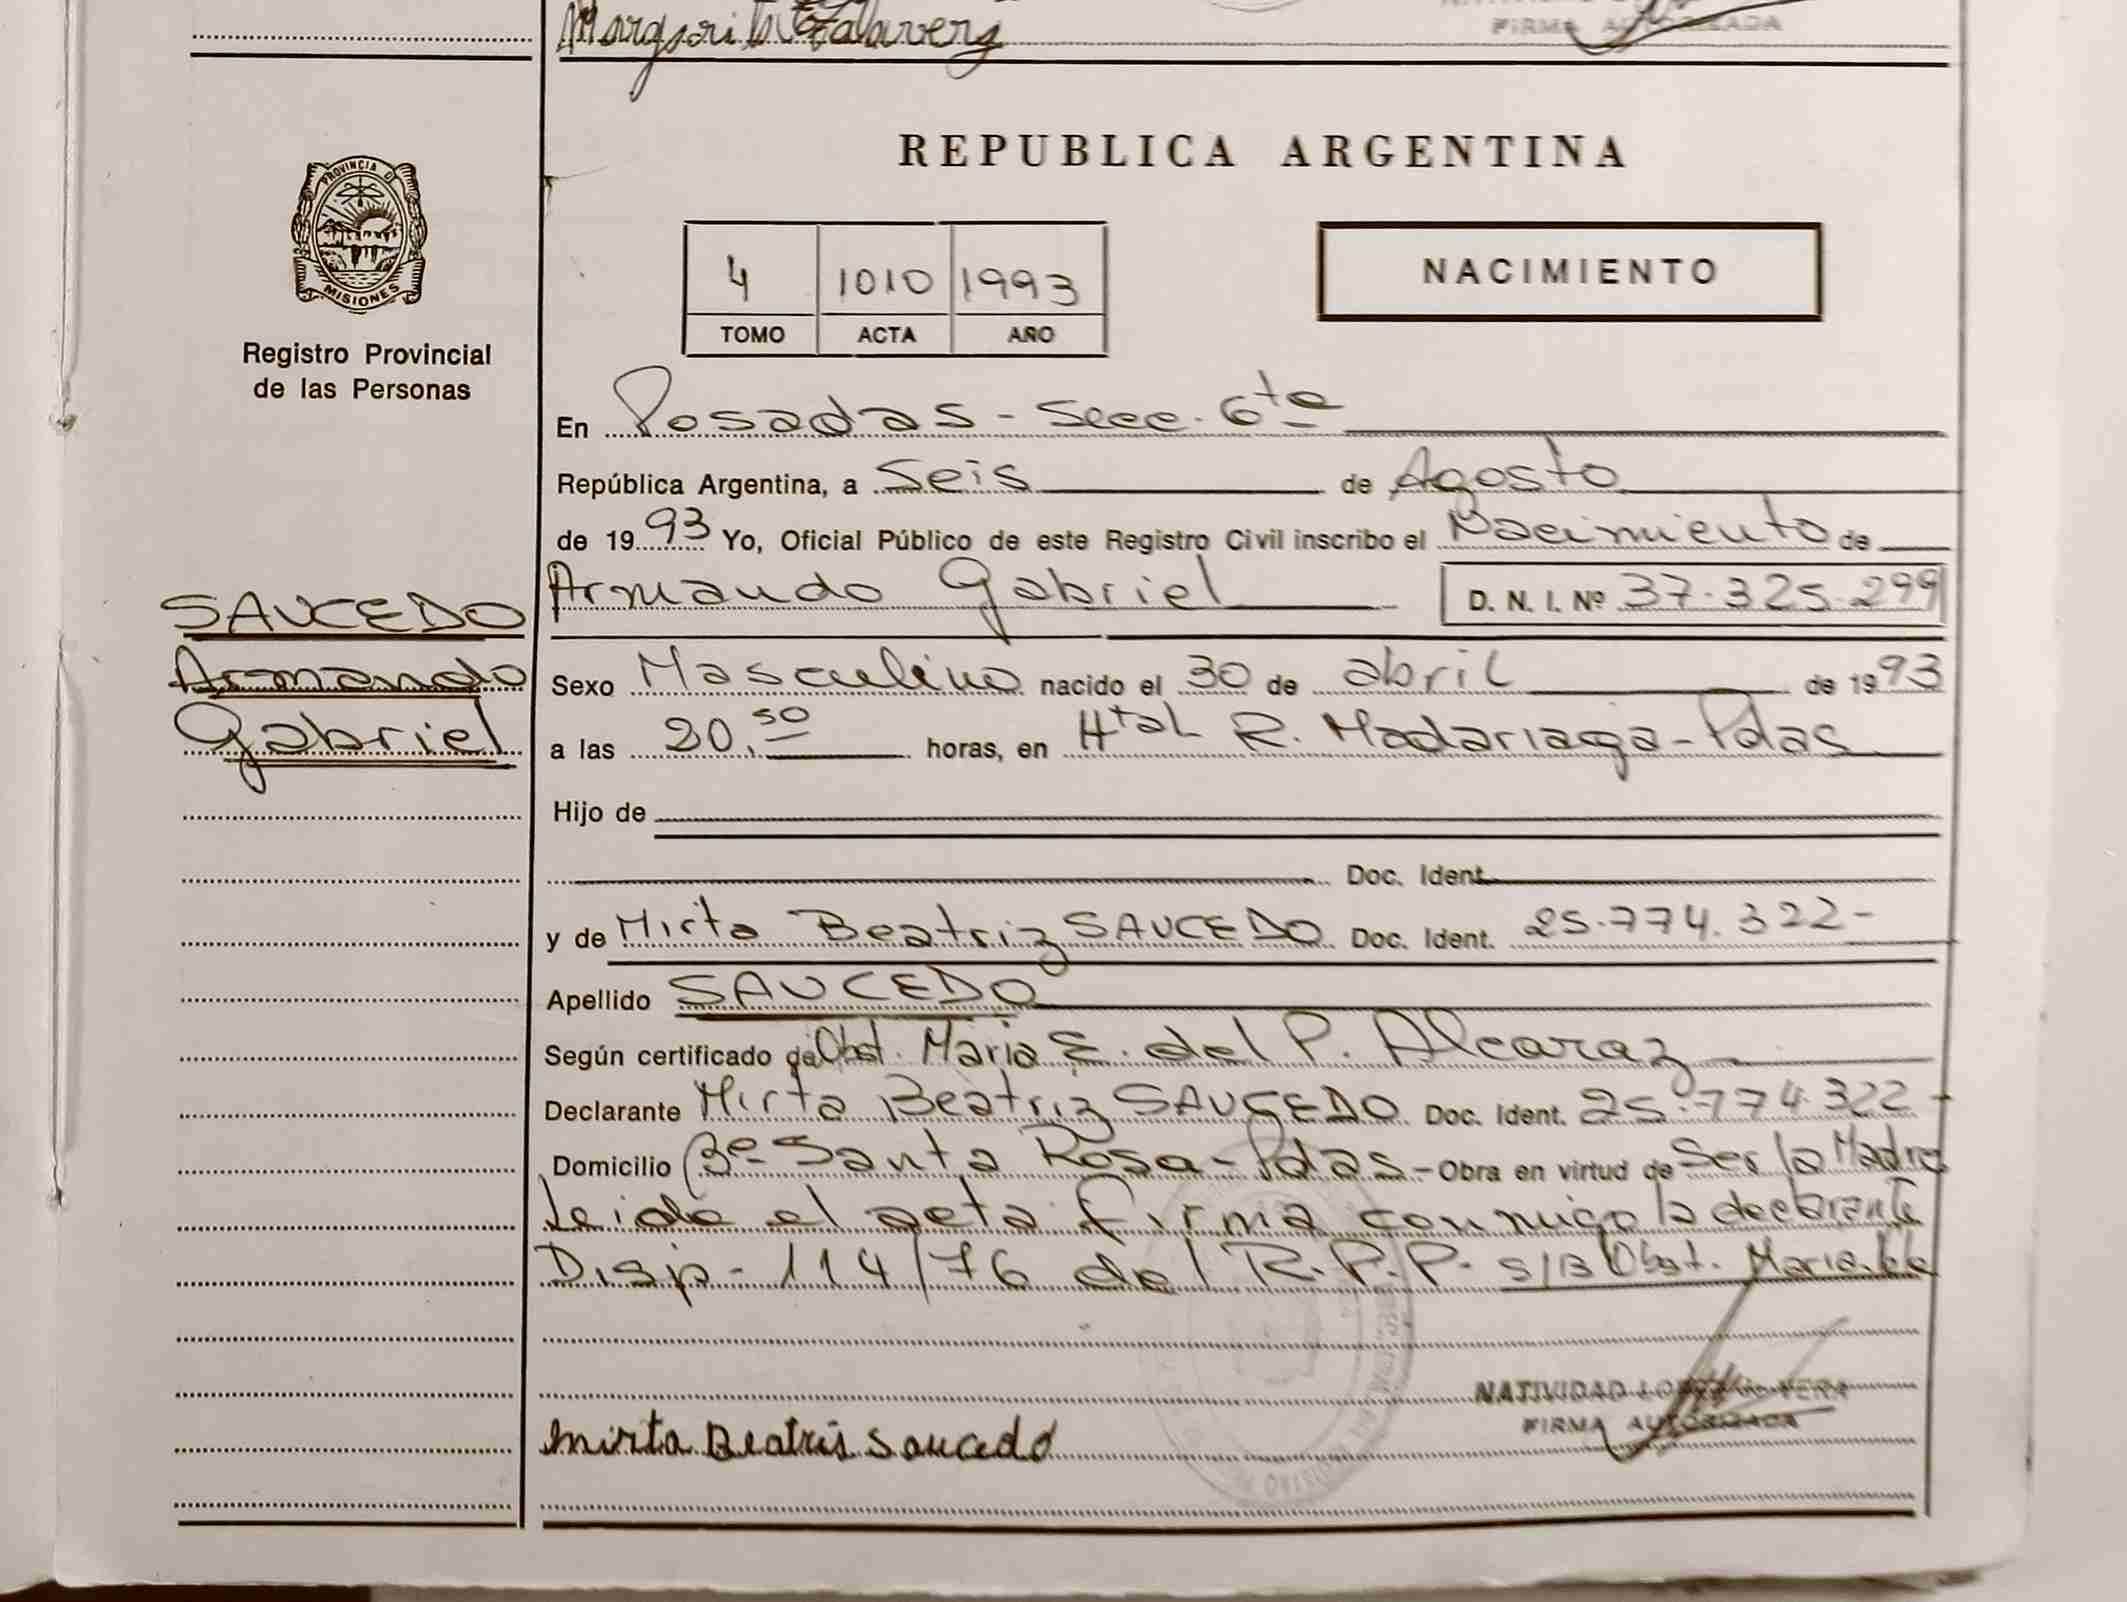 Margarita Talavera
FIRMA AUTORIZADA
PROVINCIA D
MISIONES
Registro Provincial
de las Personas
REPUBLICA ARGENTINA
4 1010 1993
TOMO ACTA AÑO
NACIMIENTO
En Posadas - Secc. 6ta
República Argentina, a Seis de Agosto
de 1993 Yo, Oficial Público de este Registro Civil inscribo el Nacimiento de
Armando Gabriel D. N. I. Nº 37.325.299
SAUCEDO
Armando
Gabriel
Sexo Masculino nacido el 30 de abril de 1993
a las 20.50 horas, en Htal R. Madariaga - Pdas
Hijo de
Doc. Ident.
y de Mirta Beatriz SAUCEDO Doc. Ident. 25.774.322-
Apellido SAUCEDO
Según certificado de Obst. Maria E. del P. Alcaraz
Declarante Mirta Beatriz SAUCEDO Doc. Ident. 25.774.322-
Domicilio Bº Santa Rosa - Pdas.- Obra en virtud de Ser la Madre
Leida el acta firma conmigo la declarante
Disp - 114/76 del R.P.P. s/B Obst. Maria.
NATIVIDAD VERA
FIRMA AUTORIZADA
mirta Beatris Saucedo